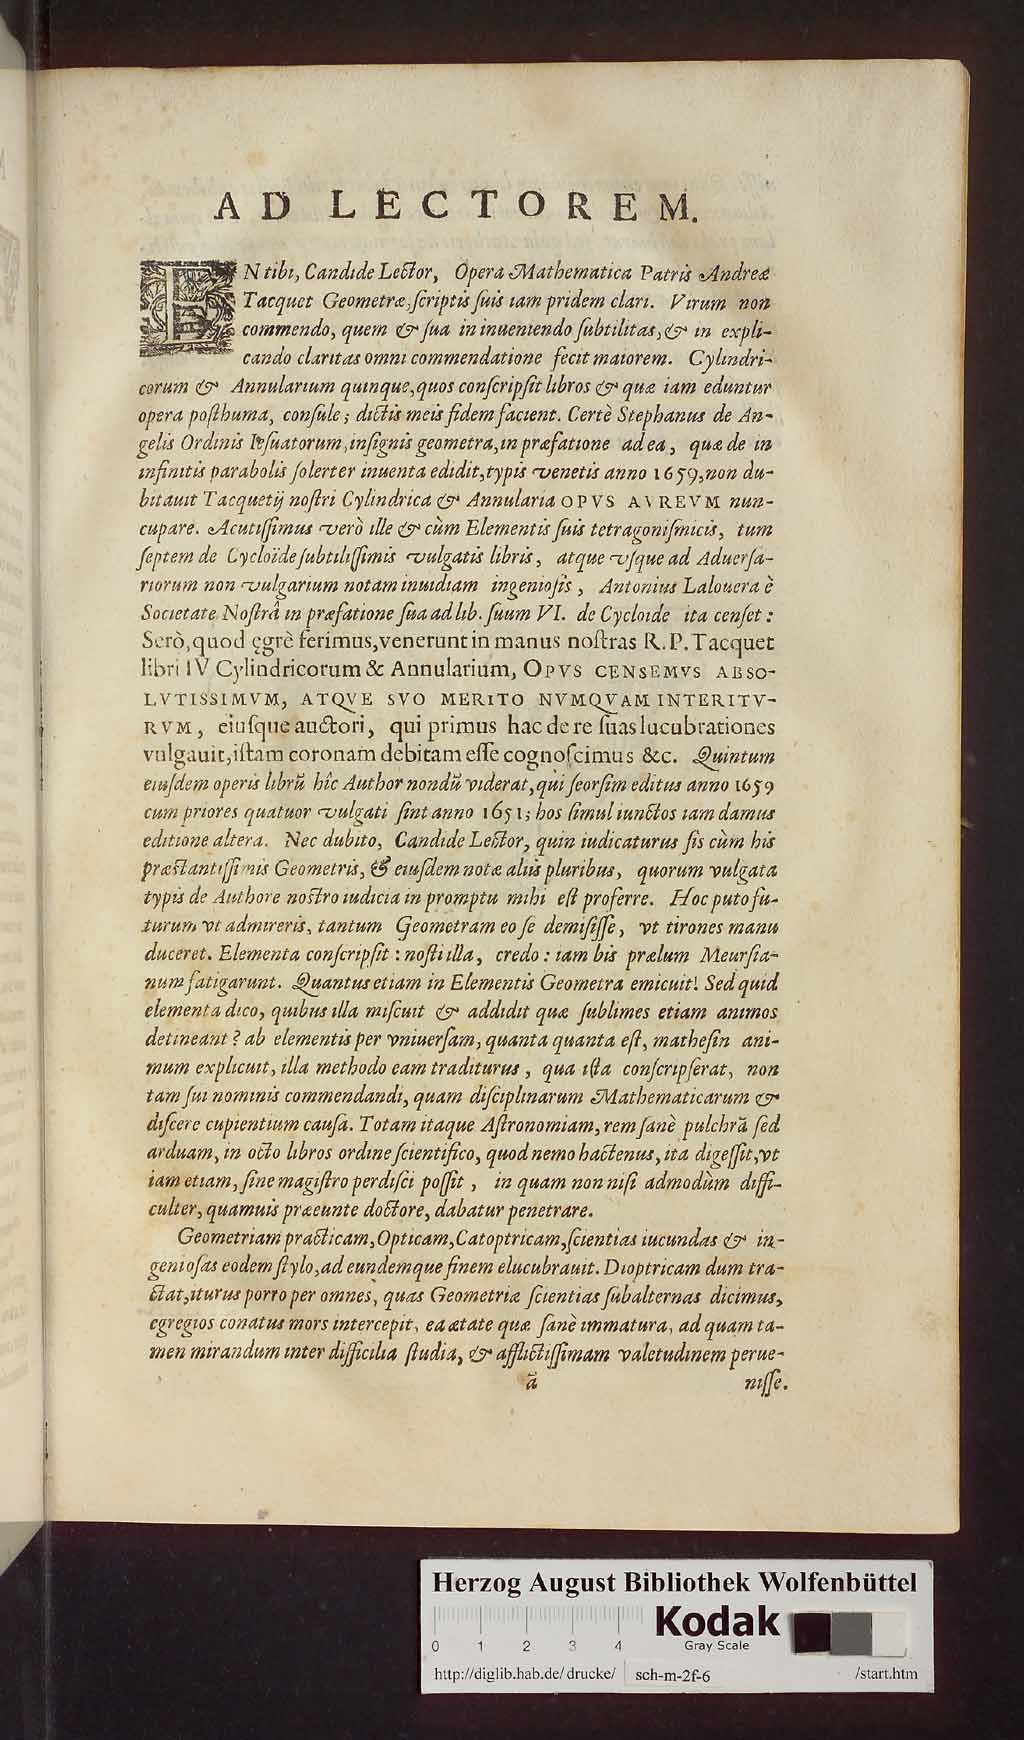 AD LECTOREM.
EN tibi, Candide Lector, Opera Mathematica Patris Andreæ
Tacquet Geometræ, ſcriptis ſuis iam pridem clari. Virum non
commendo, quem & ſua in inueniendo ſubtilitas, & in expli-
cando claritas omni commendatione fecit maiorem. Cylindri-
corum & Annularium quinque, quos conſcripſit libros & quæ iam eduntur
opera poſthuma, conſule; dictis meis fidem facient. Certè Stephanus de An-
gelis Ordinis Ieſuatorum, inſignis geometra, in præfatione ad ea, quæ de in
infinitis parabolis ſolerter inuenta edidit, typis venetis anno 1659, non du-
bitauit Tacquetij noſtri Cylindrica & Annularia OPVS AVREVM nun-
cupare. Acutiſſimus verò ille & cùm Elementis ſuis tetragoniſmicis, tum
ſeptem de Cycloïde ſubtiliſſimis vulgatis libris, atque vſque ad Aduerſa-
riorum non vulgarium notam inuidiam ingenioſis, Antonius Lalouera è
Societate Noſtrâ in præfatione ſua ad lib. ſuum VI. de Cycloide ita cenſet:
Serò, quod ęgrè ferimus, venerunt in manus noſtras R. P. Tacquet
libri IV Cylindricorum & Annularium, OPVS CENSEMVS ABSO-
LVTISSIMVM, ATQVE SVO MERITO NVMQVAM INTERITV-
RVM, eiuſque auctori, qui primus hac de re ſuas lucubrationes
vulgauit, iſtam coronam debitam eſſe cognoſcimus &c. Quintum
eiuſdem operis librũ hîc Author nondũ viderat, qui ſeorſim editus anno 1659
cum priores quatuor vulgati ſint anno 1651; hos ſimul iunctos iam damus
editione altera. Nec dubito, Candide Lector, quin iudicaturus ſis cùm his
præſtantiſſimis Geometris, & eiuſdem notæ aliis pluribus, quorum vulgata
typis de Authore noſtro iudicia in promptu mihi eſt proferre. Hoc puto fu-
turum vt admireris, tantum Geometram eo ſe demiſiſſe, vt tirones manu
duceret. Elementa conſcripſit: noſti illa, credo: iam bis prælum Meurſia-
num fatigarunt. Quantus etiam in Elementis Geometra emicuit! Sed quid
elementa dico, quibus illa miſcuit & addidit quæ ſublimes etiam animos
detineant? ab elementis per vniuerſam, quanta quanta eſt, matheſin ani-
mum explicuit, illa methodo eam traditurus, qua iſta conſcripſerat, non
tam ſui nominis commendandi, quam diſciplinarum Mathematicarum &
diſcere cupientium cauſa. Totam itaque Aſtronomiam, rem ſanè pulchrã ſed
arduam, in octo libros ordine ſcientifico, quod nemo hactenus, ita digeſſit, vt
iam etiam, ſine magiſtro perdiſci poſſit, in quam non niſi admodùm diffi-
culter, quamuis præeunte doctore, dabatur penetrare.
Geometriam practicam, Opticam, Catoptricam, ſcientias iucundas & in-
genioſas eodem ſtylo, ad eundemque finem elucubrauit. Dioptricam dum tra-
ctat, iturus porro per omnes, quas Geometriæ ſcientias ſubalternas dicimus,
egregios conatus mors intercepit, ea ætate quæ ſanè immatura, ad quam ta-
men mirandum inter difficilia ſtudia, & afflictiſſimam valetudinem perue-
ã niſſe.
Herzog August Bibliothek Wolfenbüttel
Kodak
Gray Scale
0 1 2 3 4
http://diglib.hab.de/drucke/ sch-m-2f-6 /start.htm